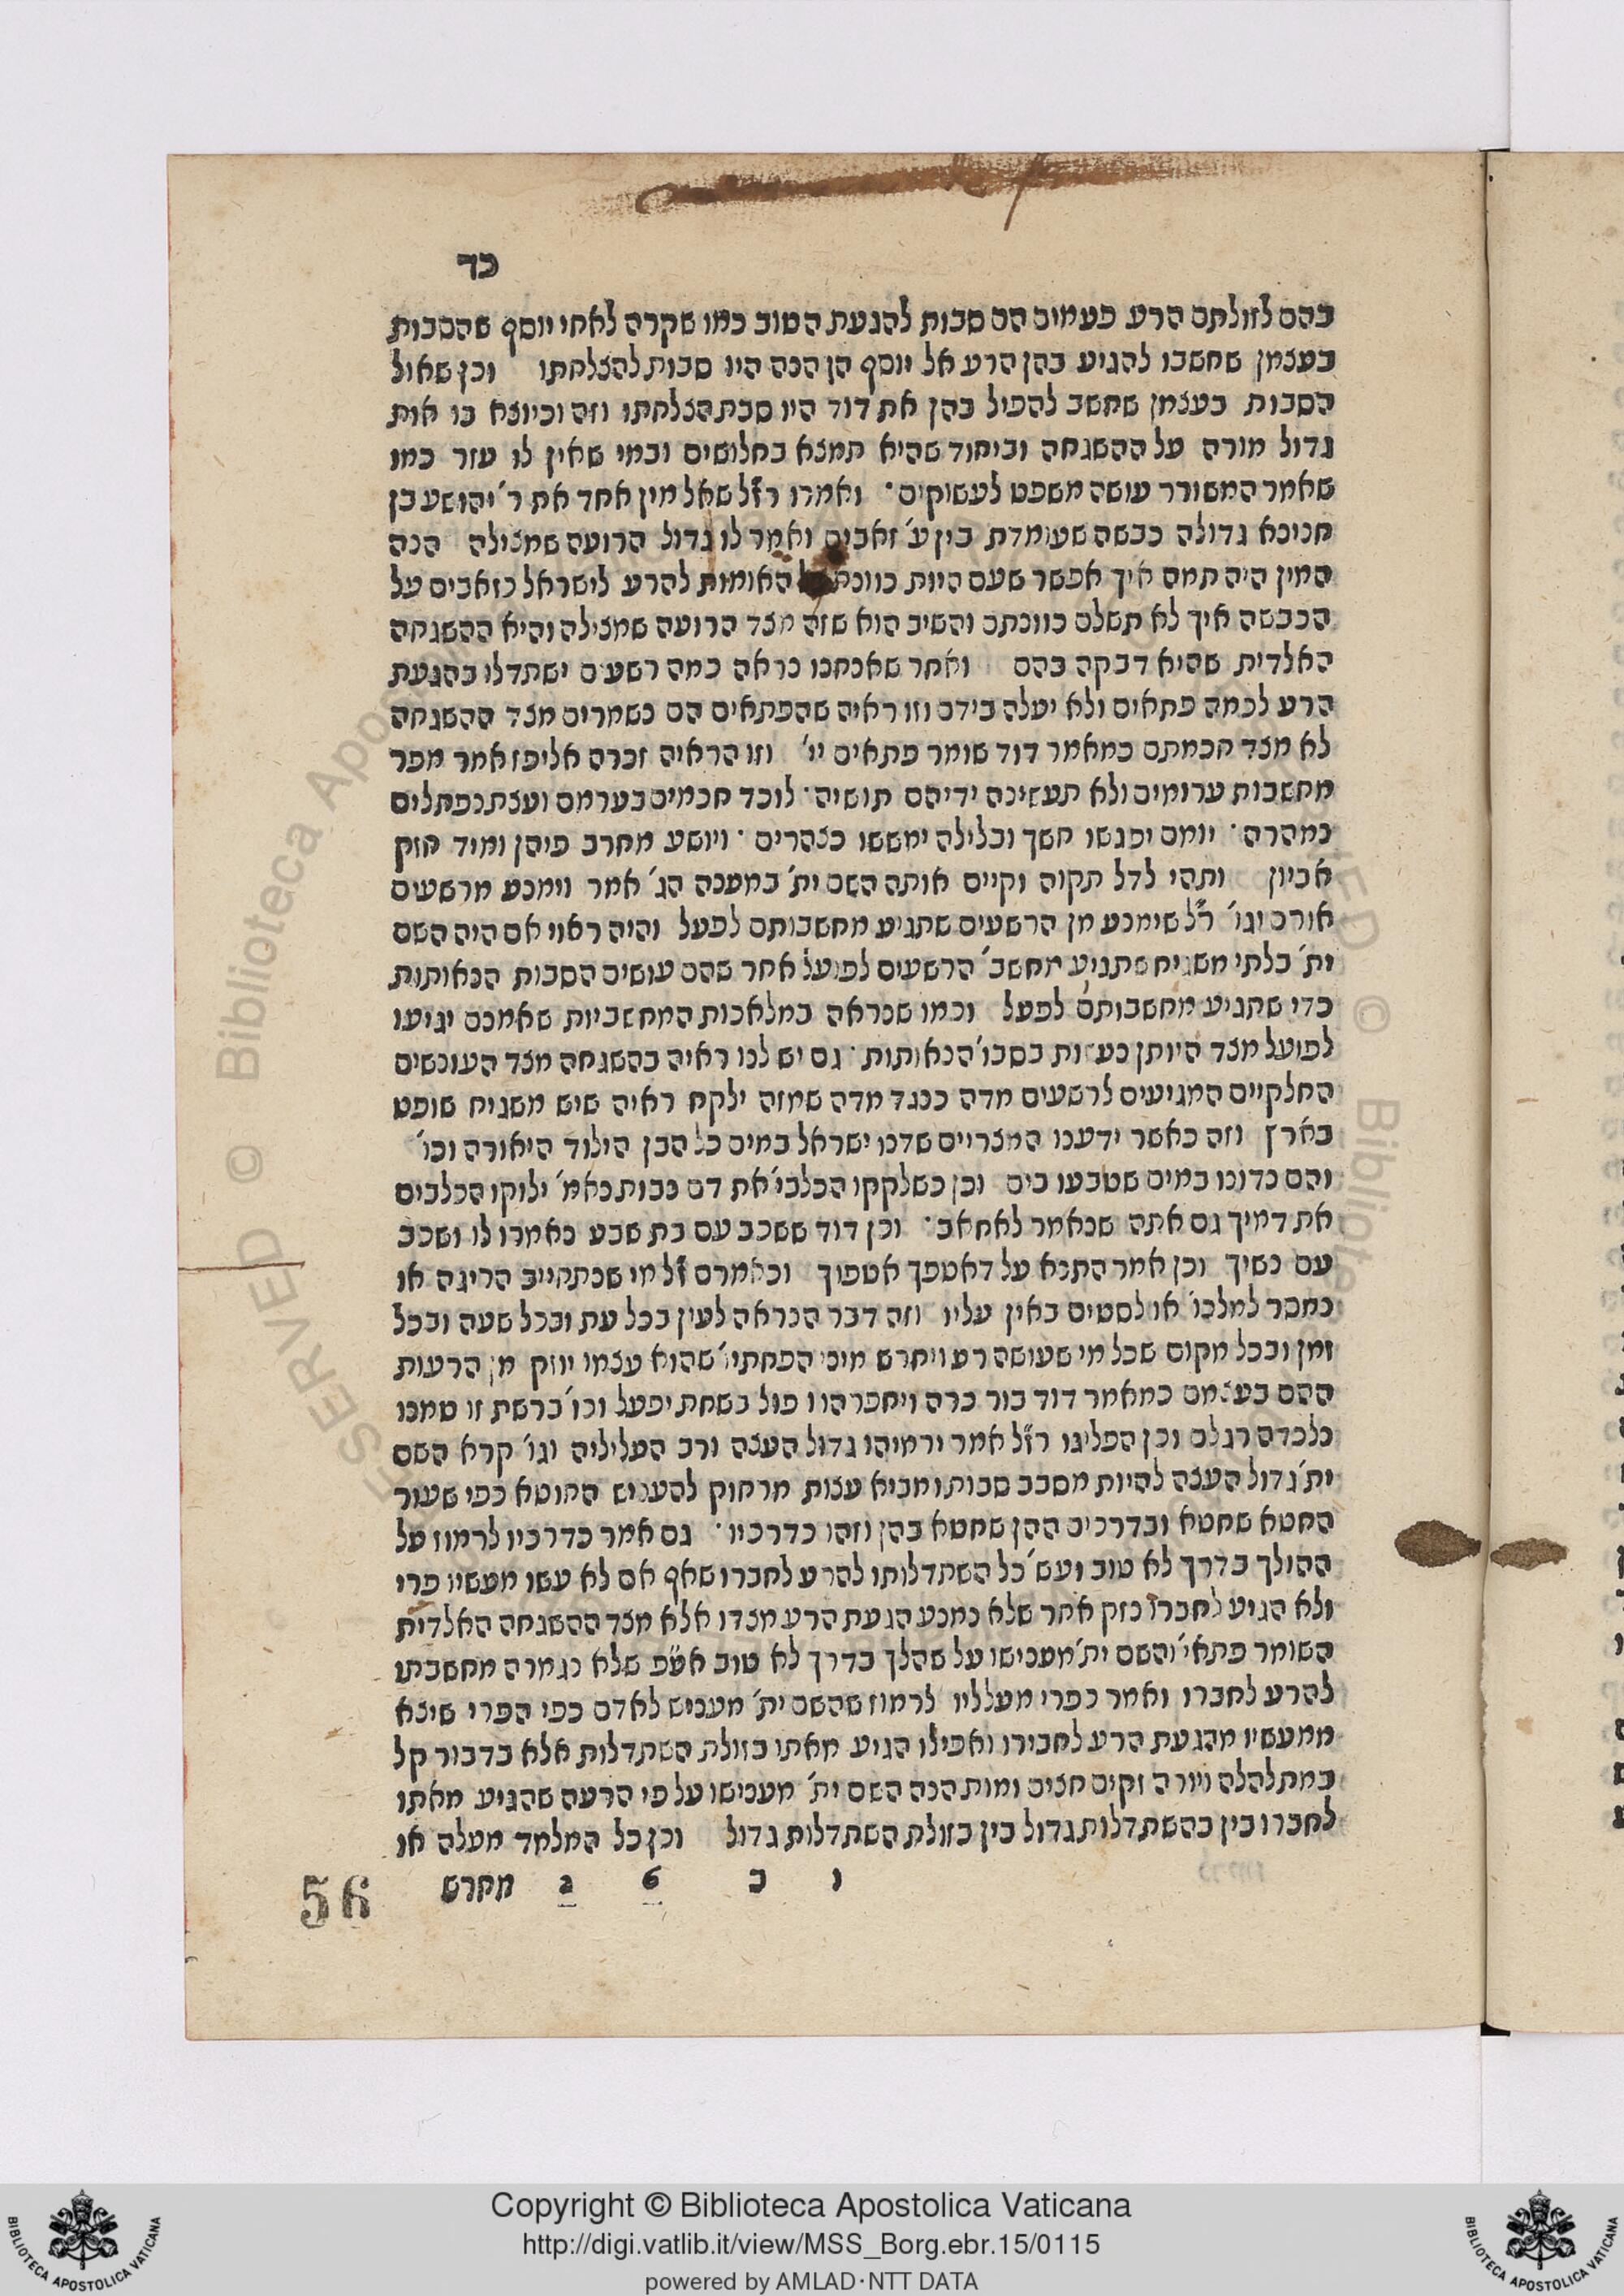 כד
בהם לזולתם הרע פעמים הם סבות להגעת הטוב כמו שקרה לאחי יוסף שהסבות
בעצמן שחשבו להגיע בהן הרע אל יוסף הן הנה היו סבות להצלחתו וכן שאול
הסבות בעצמן שחשב להפיל בהן את דוד היו סבת הצלחתו וזה וכיוצא בו אות
גדול מורה על ההשגחה וביחוד שהיא תמצא בחלושים ובמי שאין לו עזר כמו
שאמר המשורר עושה משפט לעשוקים· ואמרו רז״ל שאל מין אחד את ר׳ יהושע בן
חנינא גדולה כבשה שעומדת בין ע׳ זאבים ואמר לו גדול הרועה שמצולה הנה
המין היה תמה איך אפשר שעם היות כוונת האומות להרע לישראל כזאבים על
הכבשה איך לא תשלם כוונתם והשיב הוא שזה מצד הרועה שמצילה והיא ההשגחה
האלדית שהיא דבקה בהם ואחר שאנחנו נראה כמה רשעים ישתדלו בהגעת
הרע לכמה פתאים ולא יעלה בידם וזו ראיה שהפתאים הם נשמרים מצד ההשגחה
לא מצד חכמתם כמאמר דוד שומר פתאים יי׳ וזו הראיה זכרה אליפז אמר מפר
מחשבות ערומים ולא תעשינה ידיהם תושיה· לוכד חכמים בערמם ועצת נפתלים
נמהרה· יומם יפגשו חשך ובלילה ימששו כצהרים· ויושע מחרב פיהן ומיד חזק
אביון ותהי לדל תקוה וקיים אותה השם ית׳ במענה הג׳ אמר וימנע מרשעים
אורם וגו׳ ר״ל שימנע מן הרשעים שתגיע מחשבותם לפעל והיה ראוי אם היה השם
ית׳ בלתי משגיח שתגיע מחשב׳ הרשעים לפועל אחר שהם עושים הסבות הנאותות
כדי שתגיע מחשבותם לפעל וכמו שנראה במלאכות המחשביות שאמנם יגיעו
לפועל מצד היותן נעשות בסבו׳ הנאותות· גם יש לנו ראיה בהשגחה מצד העונשים
החלקיים המגיעים לרשעים מדה כנגד מדה שמזה ילקח ראיה שיש משגיח שופט
בארץ וזה כאשר ידענו המצריים שדנו ישראל במים כל הבן הילוד היאורה וכו׳
והם נדונו במים שטבעו בים וכן כשלקקו הכלבי׳ את דם נבות נאמ׳ ילוקו הכלבים
את דמיך גם אתה שנאמר לאחאב· וכן דוד ששכב עם בת שבע נאמרו לו ושכב
עם נשיך וכן אמר התנא על דאטפך אטפוך וכאמרם ז״ל מי שנתחייב הריגה או
נמסר למלכו׳ או לסטים באין עליו וזה דבר הנראה לעין בכל עת ובכל שעה ובכל
זמן ובכל מקום שכל מי שעושה רע ויחרש מיני הפחתיו׳ שהוא עצמו יוזק מן הרעות
ההם בעצמם כמאמר דוד בור כרה ויחפרהו ויפול בשחת יפעל וכו׳ ברשת זו טמנו
נלכדה רגלם וכן הפליגו רז״ל אמר ירמיהו גדול העצה ורב העליליה וגו׳ קרא השם
ית׳ גדול העצה להיות מסבב סבות ומביא עצות מרחוק להעניש החוטא כפי שעור
החטא שחטא ובדרכים ההן שחטא בהן וזהו כדרכיו· גם אמר כדרכיו לרמוז על
ההולך בדרך לא טוב ועש׳ כל השתדלותו להרע לחברו שאף אם לא עשו מעשיו פרי
ולא הגיע לחברו נזק אחר שלא נמנע הגעת הרע מצדו אלא מצד ההשגחה האלדית
השומר פתאי׳ והשם ית׳ מענישו על שהלך בדרך לא טוב אע״פ שלא נגמרה מחשבתו
להרע לחברו ואמר כפרי מעלליו לרמוז שהשם ית׳ מעניש לאדם כפי הפרי שיצא
ממעשיו מהגעת הרע לחבירו ואפילו הגיע מאתו בזולת השתדלות אלא בדבור קל
כמתלהלה היורה זקים חצים ומות הנה השם ית׳ מענישו על פי הרעה שהגיע מאתו
לחברו בין בהשתדלות גדול בין בזולת השתדלות גדול וכן כל המלמד מעלה או
ו כ 6 a מחרש
56
Copyright © Biblioteca Apostolica Vaticana
http://digi.vatlib.it/view/MSS_Borg.ebr.15/0115
powered by AMLAD·NTT DATA